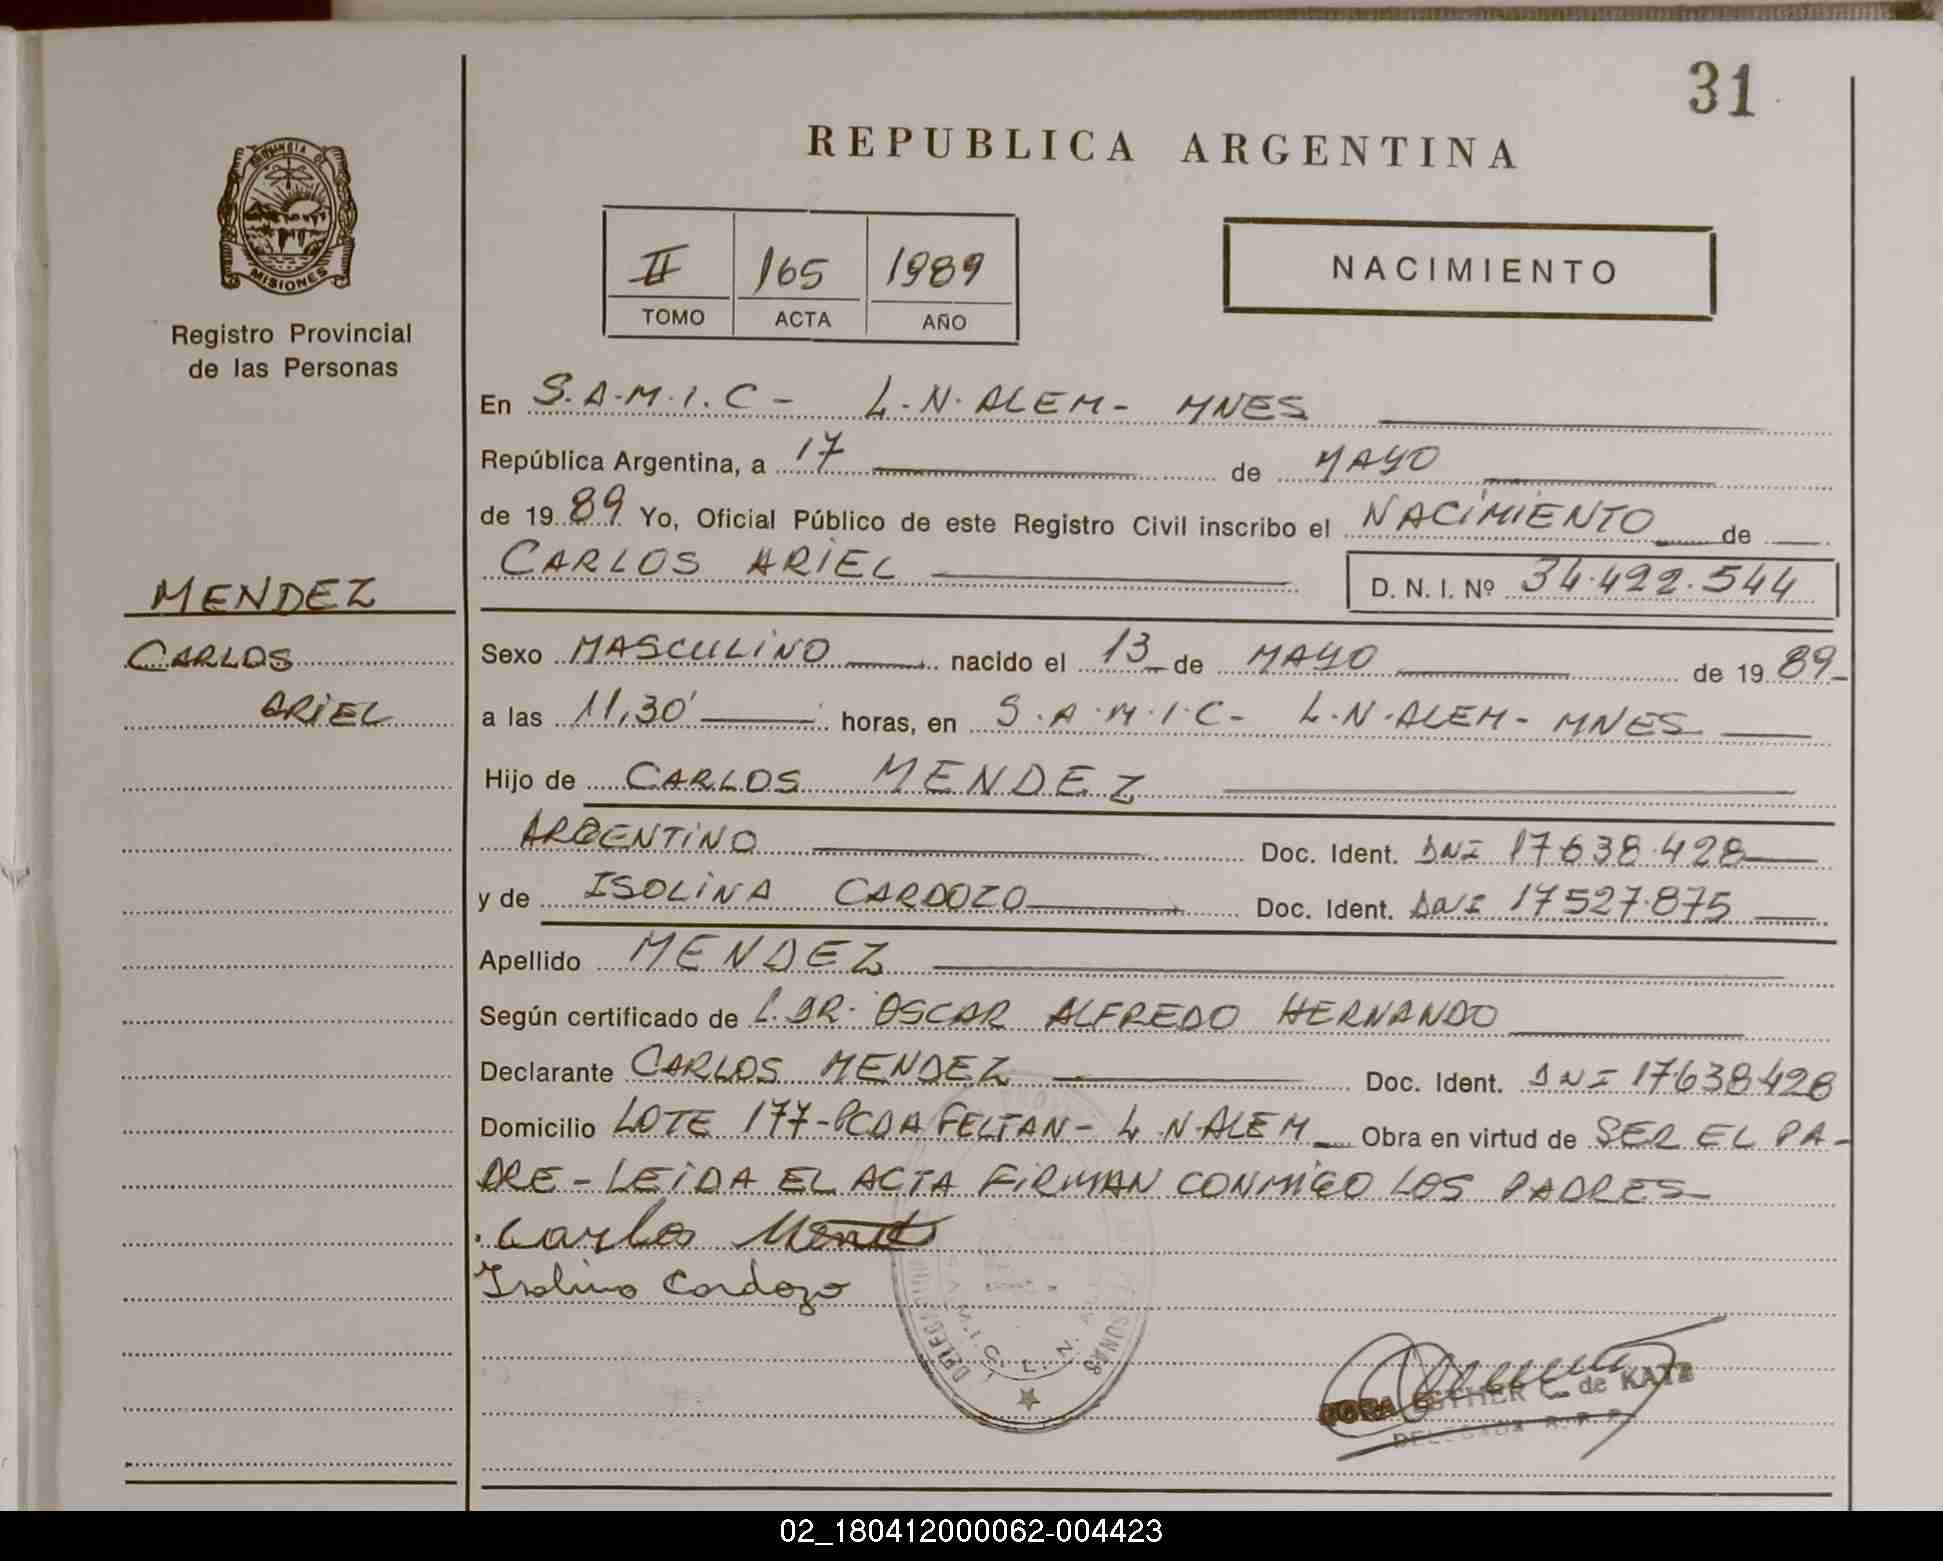 31
REPUBLICA ARGENTINA
PROVINCIA DE
MISIONES
Registro Provincial
de las Personas
II 165 1989
TOMO ACTA AÑO
NACIMIENTO
En S.A.M.I.C - L.N. ALEM - MNES
República Argentina, a 17 de MAYO
de 1989 Yo, Oficial Público de este Registro Civil inscribo el NACIMIENTO de
CARLOS ARIEL D. N. I. Nº 34.422.544
MENDEZ
CARLOS
ARIEL
Sexo MASCULINO nacido el 13 de MAYO de 1989
a las 11,30' horas, en S.A.M.I.C - L.N. ALEM - MNES
Hijo de CARLOS MENDEZ
ARGENTINO Doc. Ident. DNI 17638.428
y de ISOLINA CARDOZO Doc. Ident. DNI 17527.875
Apellido MENDEZ
Según certificado de L. DR. OSCAR ALFREDO HERNANDO
Declarante CARLOS MENDEZ Doc. Ident. DNI 17638428
Domicilio LOTE 177 - PCDA FELTAN - L.N. ALEM Obra en virtud de SER EL PA-
DRE - LEIDA EL ACTA FIRMAN CONMIGO LOS PADRES
Carlos
Isolina Cardozo
S.A.M.I.C. L. N.
ESTHER C. de KATZ
DELEGADA R.P.P.
02_180412000062-004423